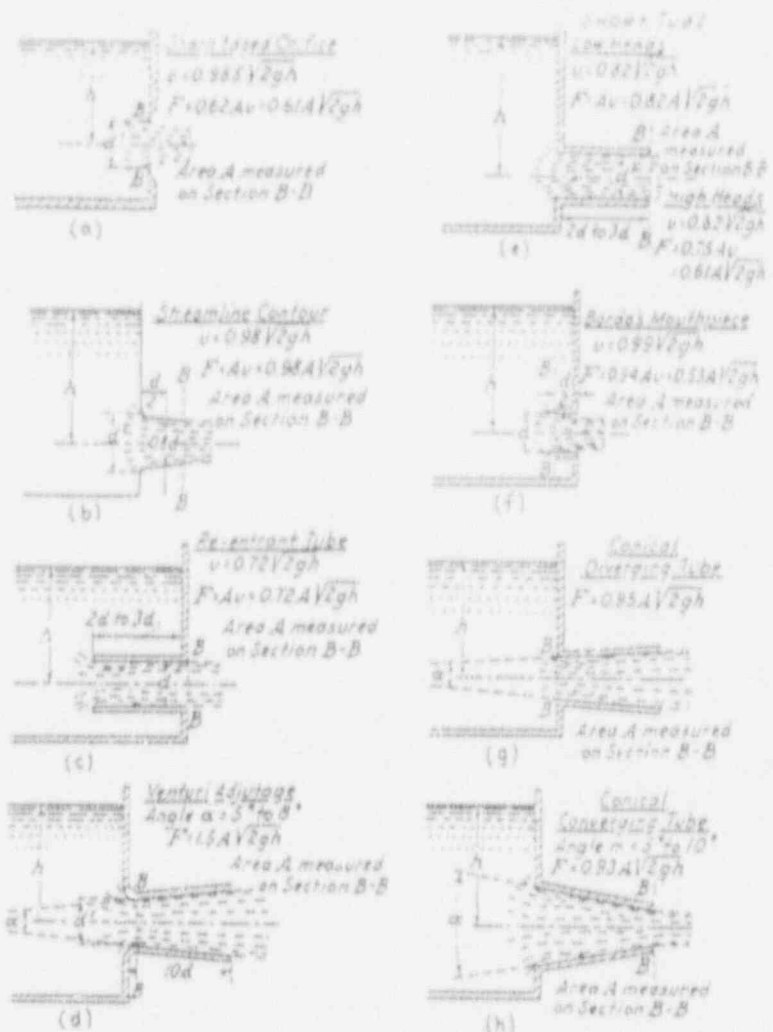 Sharp Edged Orifice
u=0.985√2gh
F=0.62Au=0.61A√2gh
h
B
d
B
Area A measured
on Section B-B
(a)
Streamline Contour
u=0.98√2gh
F=Au=0.98A√2gh
Area A measured
on Section B-B
h
d
2
B
d
0.8d
B
(b)
Re-entrant Tube
u=0.72√2gh
F=Au=0.72A√2gh
Area A measured
on Section B-B
h
2d to 3d
B
d
B
(c)
Venturi Adjutage
Angle α=5° to 8°
F=1.5A√2gh
Area A measured
on Section B-B
h
B
α
d
10d
B
(d)
Short Tube
Low Heads
u=0.82√2gh
F=Au=0.82A√2gh
h
B
Area A
measured
on Section B-B
d
High Heads
2d to 3d
u=0.82√2gh
B
F=0.75Au
=0.61A√2gh
(e)
Borda's Mouthpiece
u=0.99√2gh
F=0.54Au=0.53A√2gh
Area A measured
on Section B-B
h
B
d
2
d
B
(f)
Conical
Diverging Tube
F=0.95A√2gh
h
B
α
B
Area A measured
on Section B-B
(g)
Conical
Converging Tube
Angle 5° to 10°
F=0.93A√2gh
h
B
α
B
Area A measured
on Section B-B
(h)